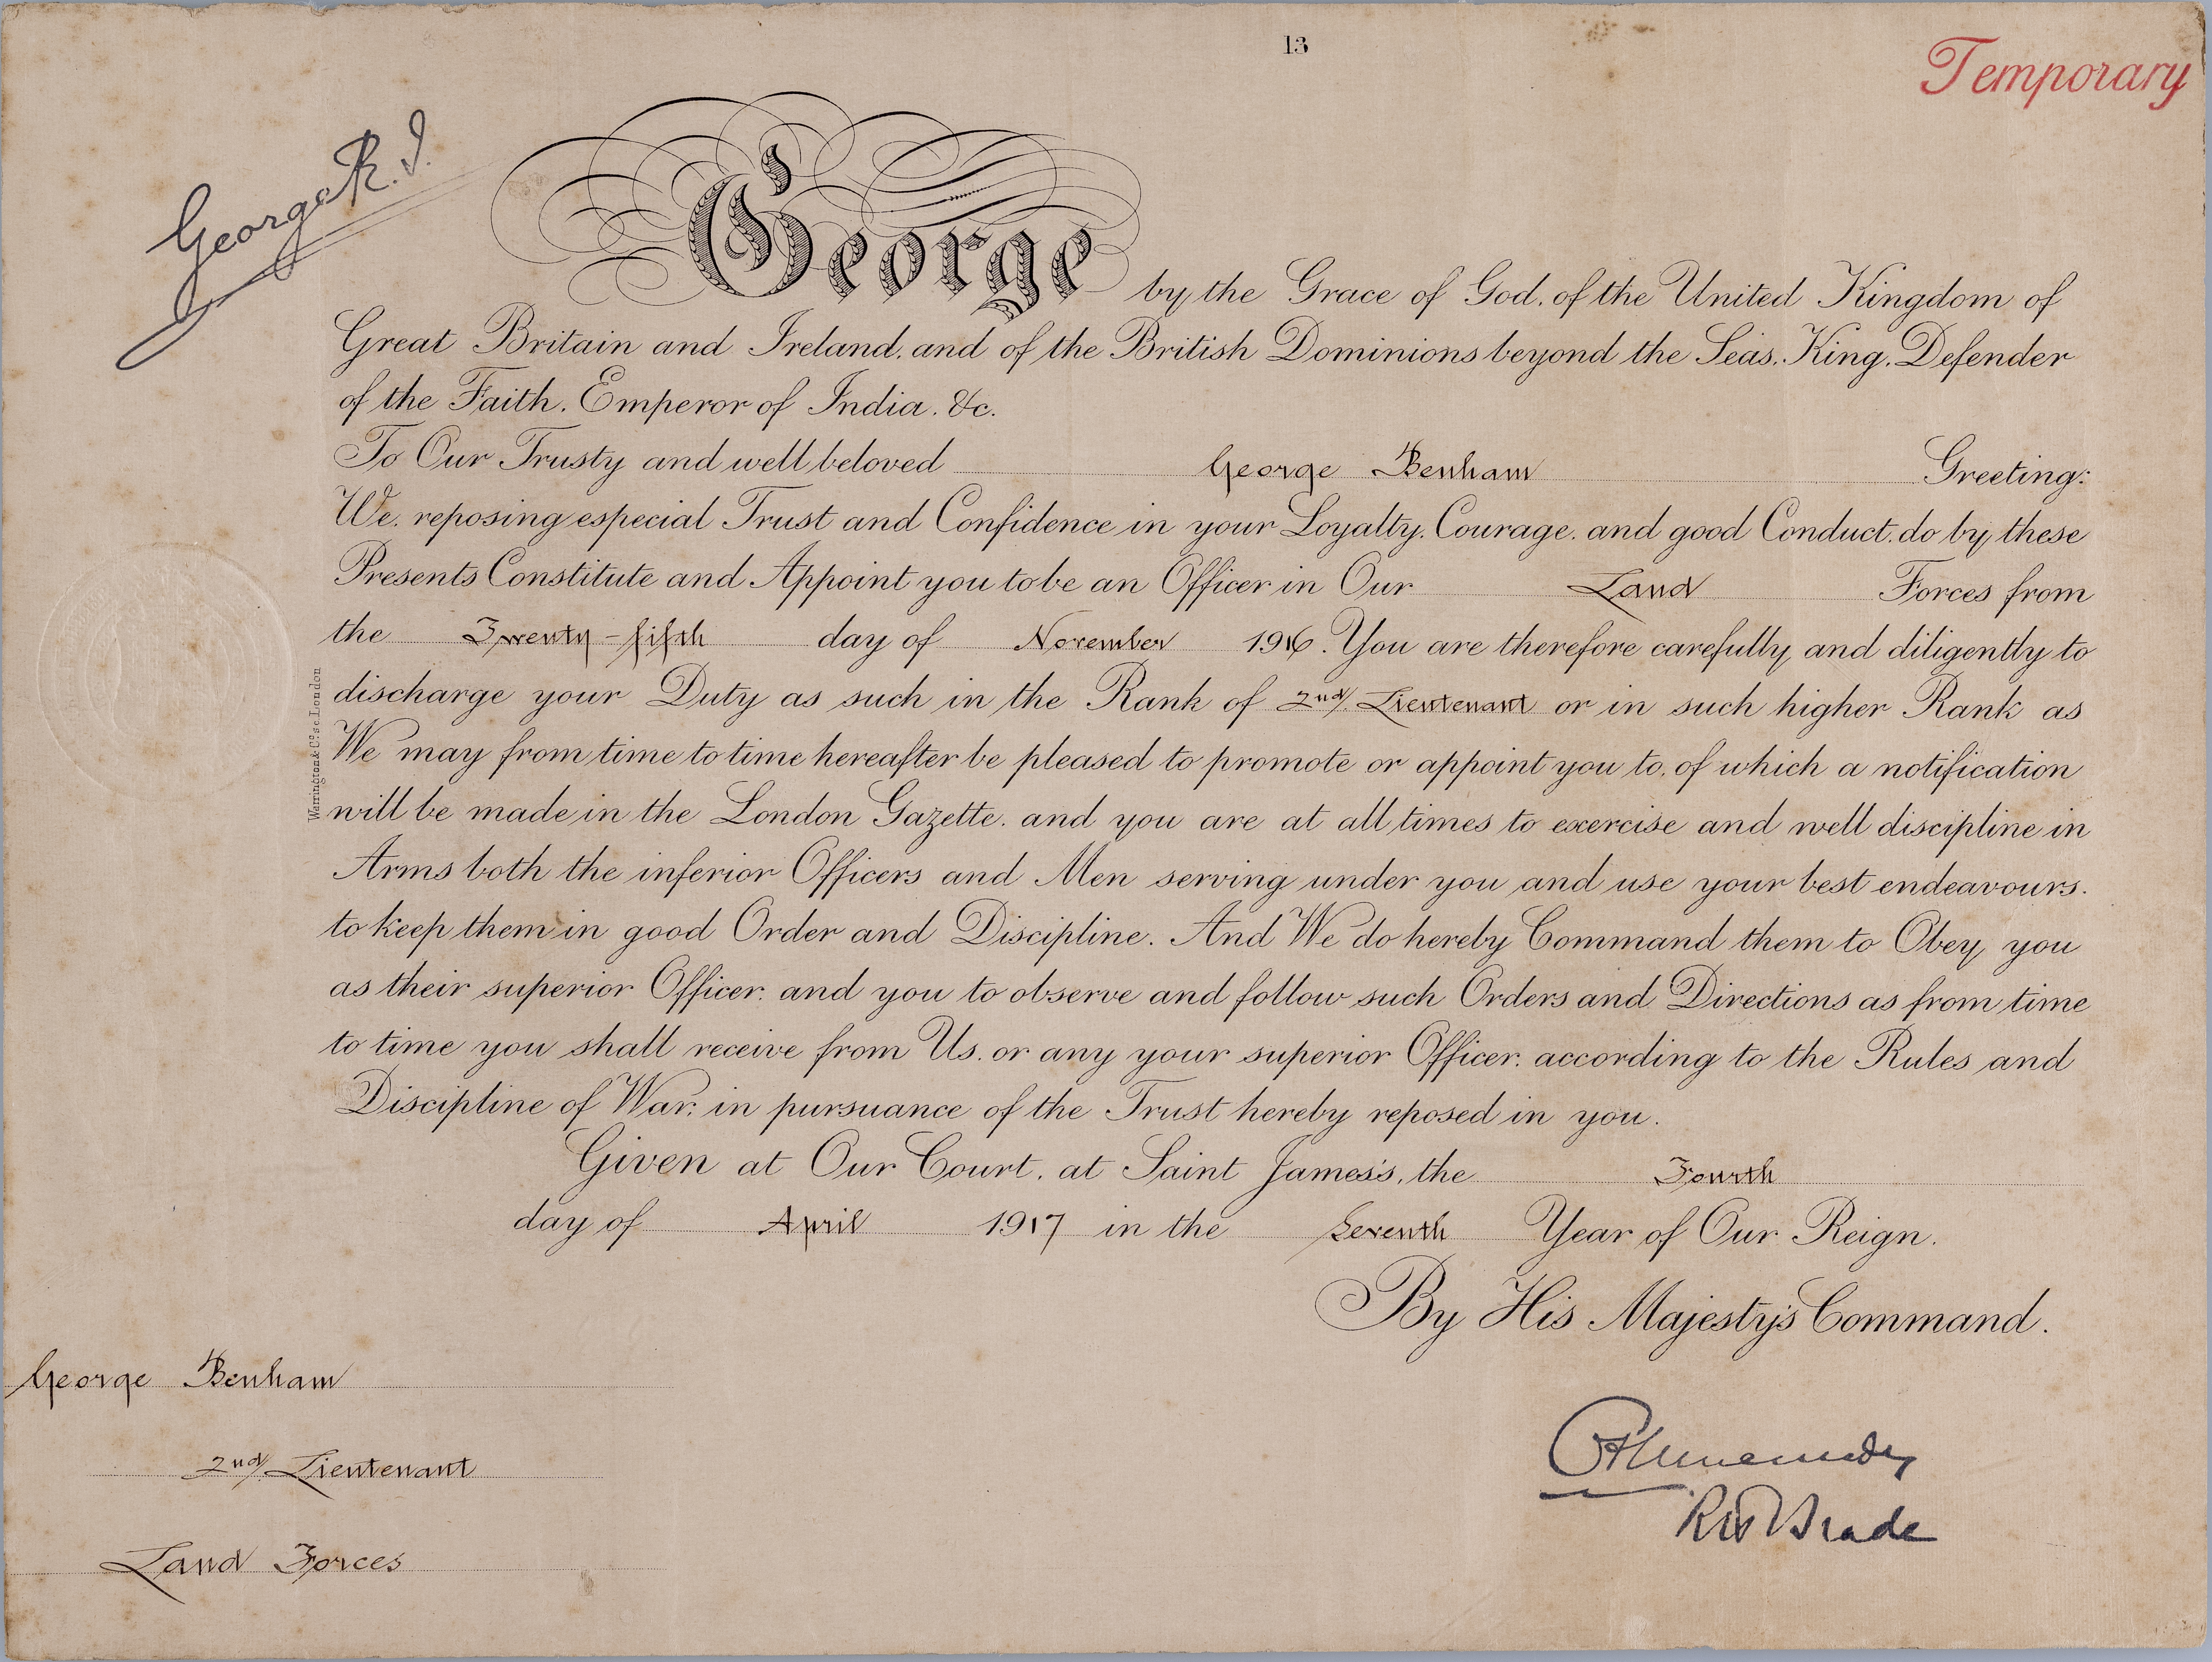 13
Temporary
George R.I.
George by the Grace of God, of the United Kingdom of
Great Britain and Ireland, and of the British Dominions beyond the Seas, King, Defender
of the Faith, Emperor of India, &c.
To Our Trusty and well beloved George Benham Greeting:
We, reposing especial Trust and Confidence in your Loyalty, Courage, and good Conduct, do by these
Presents Constitute and Appoint you to be an Officer in Our Land Forces from
the Twenty-fifth day of November 1916. You are therefore carefully and diligently to
discharge your Duty as such in the Rank of 2nd/. Lieutenant or in such higher Rank as
We may from time to time hereafter be pleased to promote or appoint you to, of which a notification
will be made in the London Gazette, and you are at all times to exercise and well discipline in
Arms both the inferior Officers and Men serving under you and use your best endeavours.
to keep them in good Order and Discipline. And We do hereby Command them to Obey you
as their superior Officer, and you to observe and follow such Orders and Directions as from time
to time you shall receive from Us, or any your superior Officer, according to the Rules and
Discipline of War, in pursuance of the Trust hereby reposed in you.
Given at Our Court, at Saint James's, the Fourth
day of April 1917 in the Seventh Year of Our Reign.
By His Majesty's Command.
Warrington & Co. sc. London
George Benham
2nd/. Lieutenant
Land Forces
RW Brade